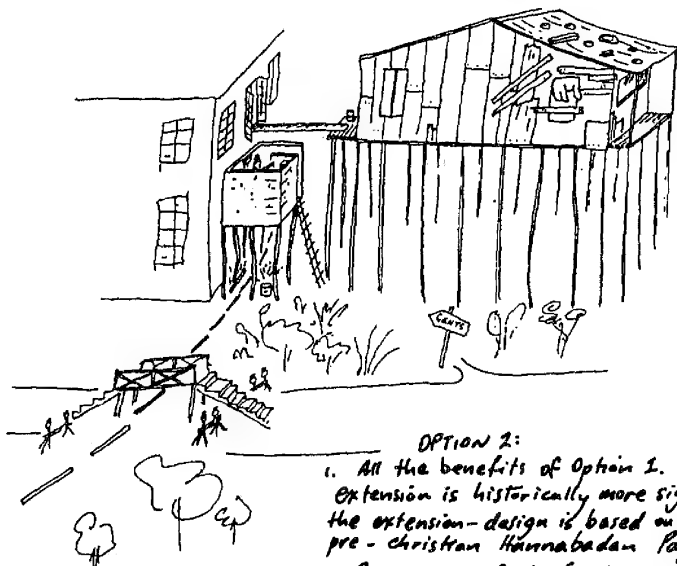 GENTS
OPTION 2:
1. All the benefits of Option 1.
extension is historically more
the extension-design is based on
pre-christian Hannabadan